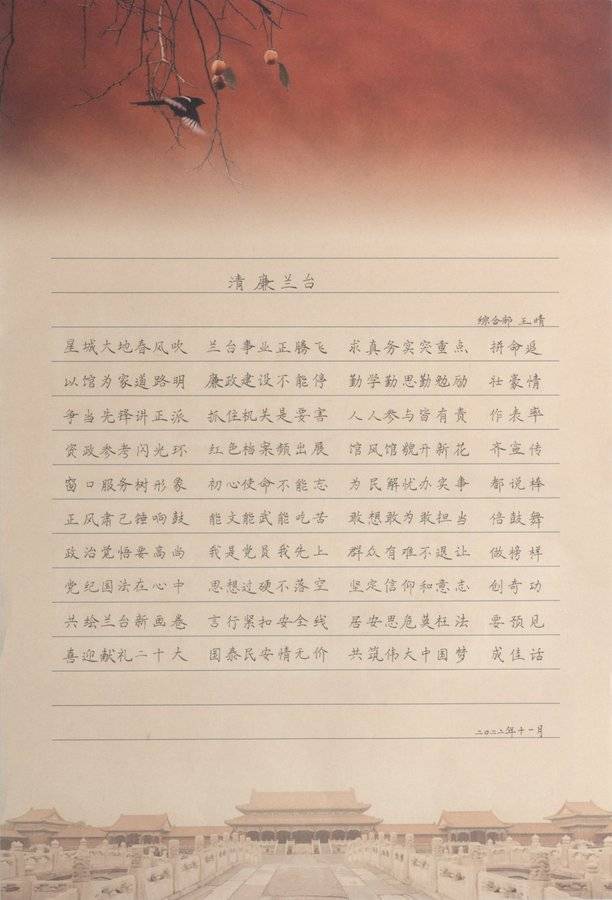 清廉兰台
综合部 王晴
星城大地春风吹 兰台事业正腾飞 求真务实突重点 拼命追
以馆为家道路明 廉政建设不能停 勤学勤思勤勉励 壮豪情
争当先锋讲正派 抓住机关是要害 人人参与皆有责 作表率
资政参考闪光环 红色档案频出展 馆风馆貌开新花 齐宣传
窗口服务树形象 初心使命不能忘 为民解忧办实事 都说棒
正风肃己锤响鼓 能文能武能吃苦 敢想敢为敢担当 倍鼓舞
政治觉悟要高尚 我是党员我先上 群众有难不退让 做榜样
党纪国法在心中 思想过硬不落空 坚定信仰和意志 创奇功
共绘兰台新画卷 言行紧扣安全线 居安思危莫枉法 要预见
喜迎献礼二十大 国泰民安情无价 共筑伟大中国梦 成佳话
二〇二二年十一月